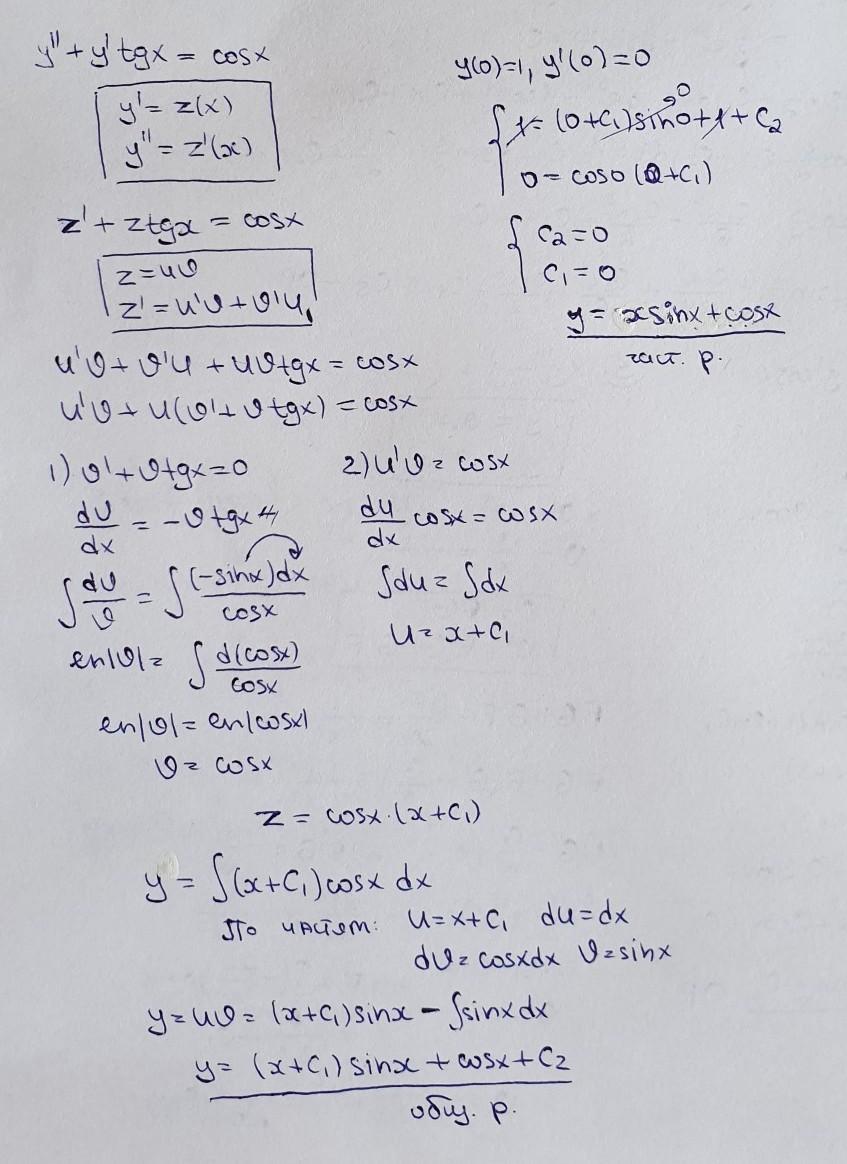 y'' + y' tgx = cosx
y' = z(x)
y'' = z'(x)
z' + ztgx = cosx
z = uv
z' = u'v + v'u
u'v + v'u + uvtgx = cosx
u'v + u(v' + vtgx) = cosx
1) v' + vtgx = 0
dv/dx = -vtgx
∫ dv/v = ∫ (-sinx)dx/cosx
ln|v| = ∫ d(cosx)/cosx
ln|v| = ln|cosx|
v = cosx
2) u'v = cosx
du/dx cosx = cosx
∫du = ∫dx
u = x + C₁
z = cosx·(x + C₁)
y = ∫(x + C₁)cosx dx
По частям: u = x + C₁ du = dx
dv = cosxdx v = sinx
y = uv = (x + C₁)sinx - ∫sinxdx
y = (x + C₁)sinx + cosx + C₂
общ. р.
y(0)=1, y'(0)=0
1 = (0 + C₁)sin0 + 1 + C₂
0
0 = cos0 (0 + C₁)
C₂ = 0
C₁ = 0
y = xsinx + cosx
част. р.